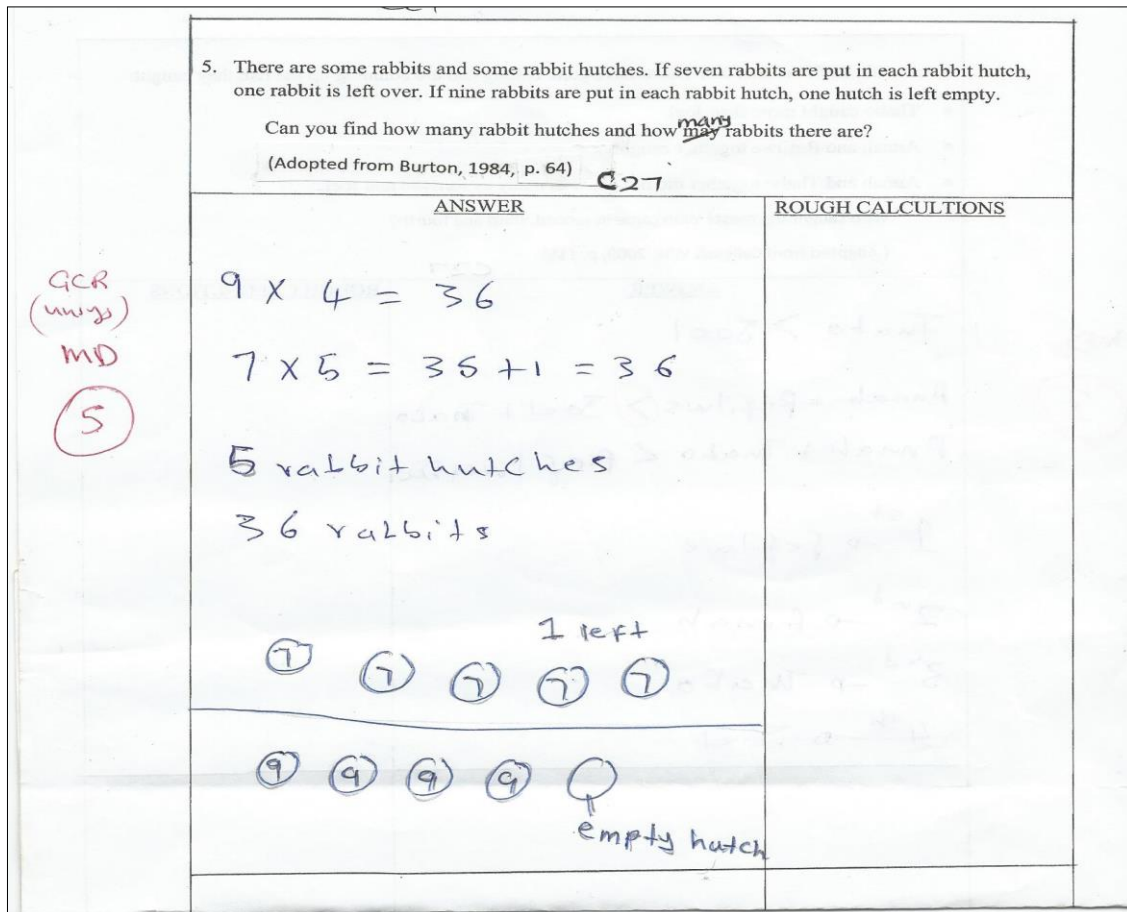 5. There are some rabbits and some rabbit hutches. If seven rabbits are put in each rabbit hutch,
one rabbit is left over. If nine rabbits are put in each rabbit hutch, one hutch is left empty.
many
Can you find how many rabbit hutches and how may rabbits there are?
(Adopted from Burton, 1984, p. 64) C27
ANSWER ROUGH CALCULTIONS
GCR
MD
5
9 × 4 = 36
7 × 5 = 35 +1 = 36
5 rabbit hutches
36 rabbits
1 left
7 7 7 7 7
9 9 9 9
empty hutch